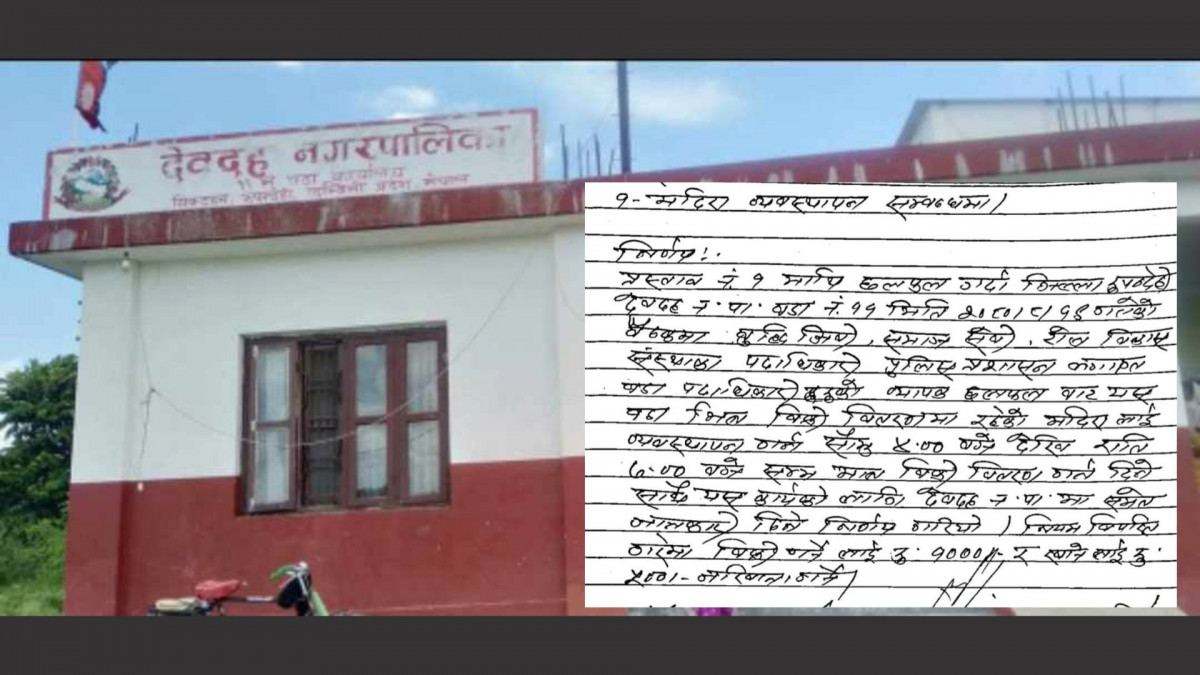 देवदह नगरपालिका
११ नं वडा कार्यालय
रुपन्देही, लुम्बिनी प्रदेश, नेपाल
१- मदिरा व्यवस्थापन सम्बन्धमा।
निर्णय:
प्रस्ताव नं. १ माथि छलफल गर्दा जिल्ला रुपन्देही
देवदह न.पा. वडा नं. ११ मिति २०८०/८/१९ गतेको
बैठकमा बुद्धिजिवी, समाज सेवी, टोल विकास
संस्थाका पदाधिकारी पुलिस प्रशासन लगायत
वडा पदाधिकारी हरुको व्यापक छलफल बाट यस
वडा भित्र बिक्री वितरणमा रहेको मदिरा लाई
व्यवस्थापन गर्न साँझ ५:०० बजे देखि राति
८:०० बजे सम्म मात्र बिक्री वितरण गर्न दिने
साथै यस कार्यको लागि देवदह न.पा. मा समेत
जानकारी दिने निर्णय गरियो। नियम विपरित
गरेमा बिक्री गर्ने लाई रु. १०००/- र खाने लाई रु.
५००।- जरिवाना गर्ने।